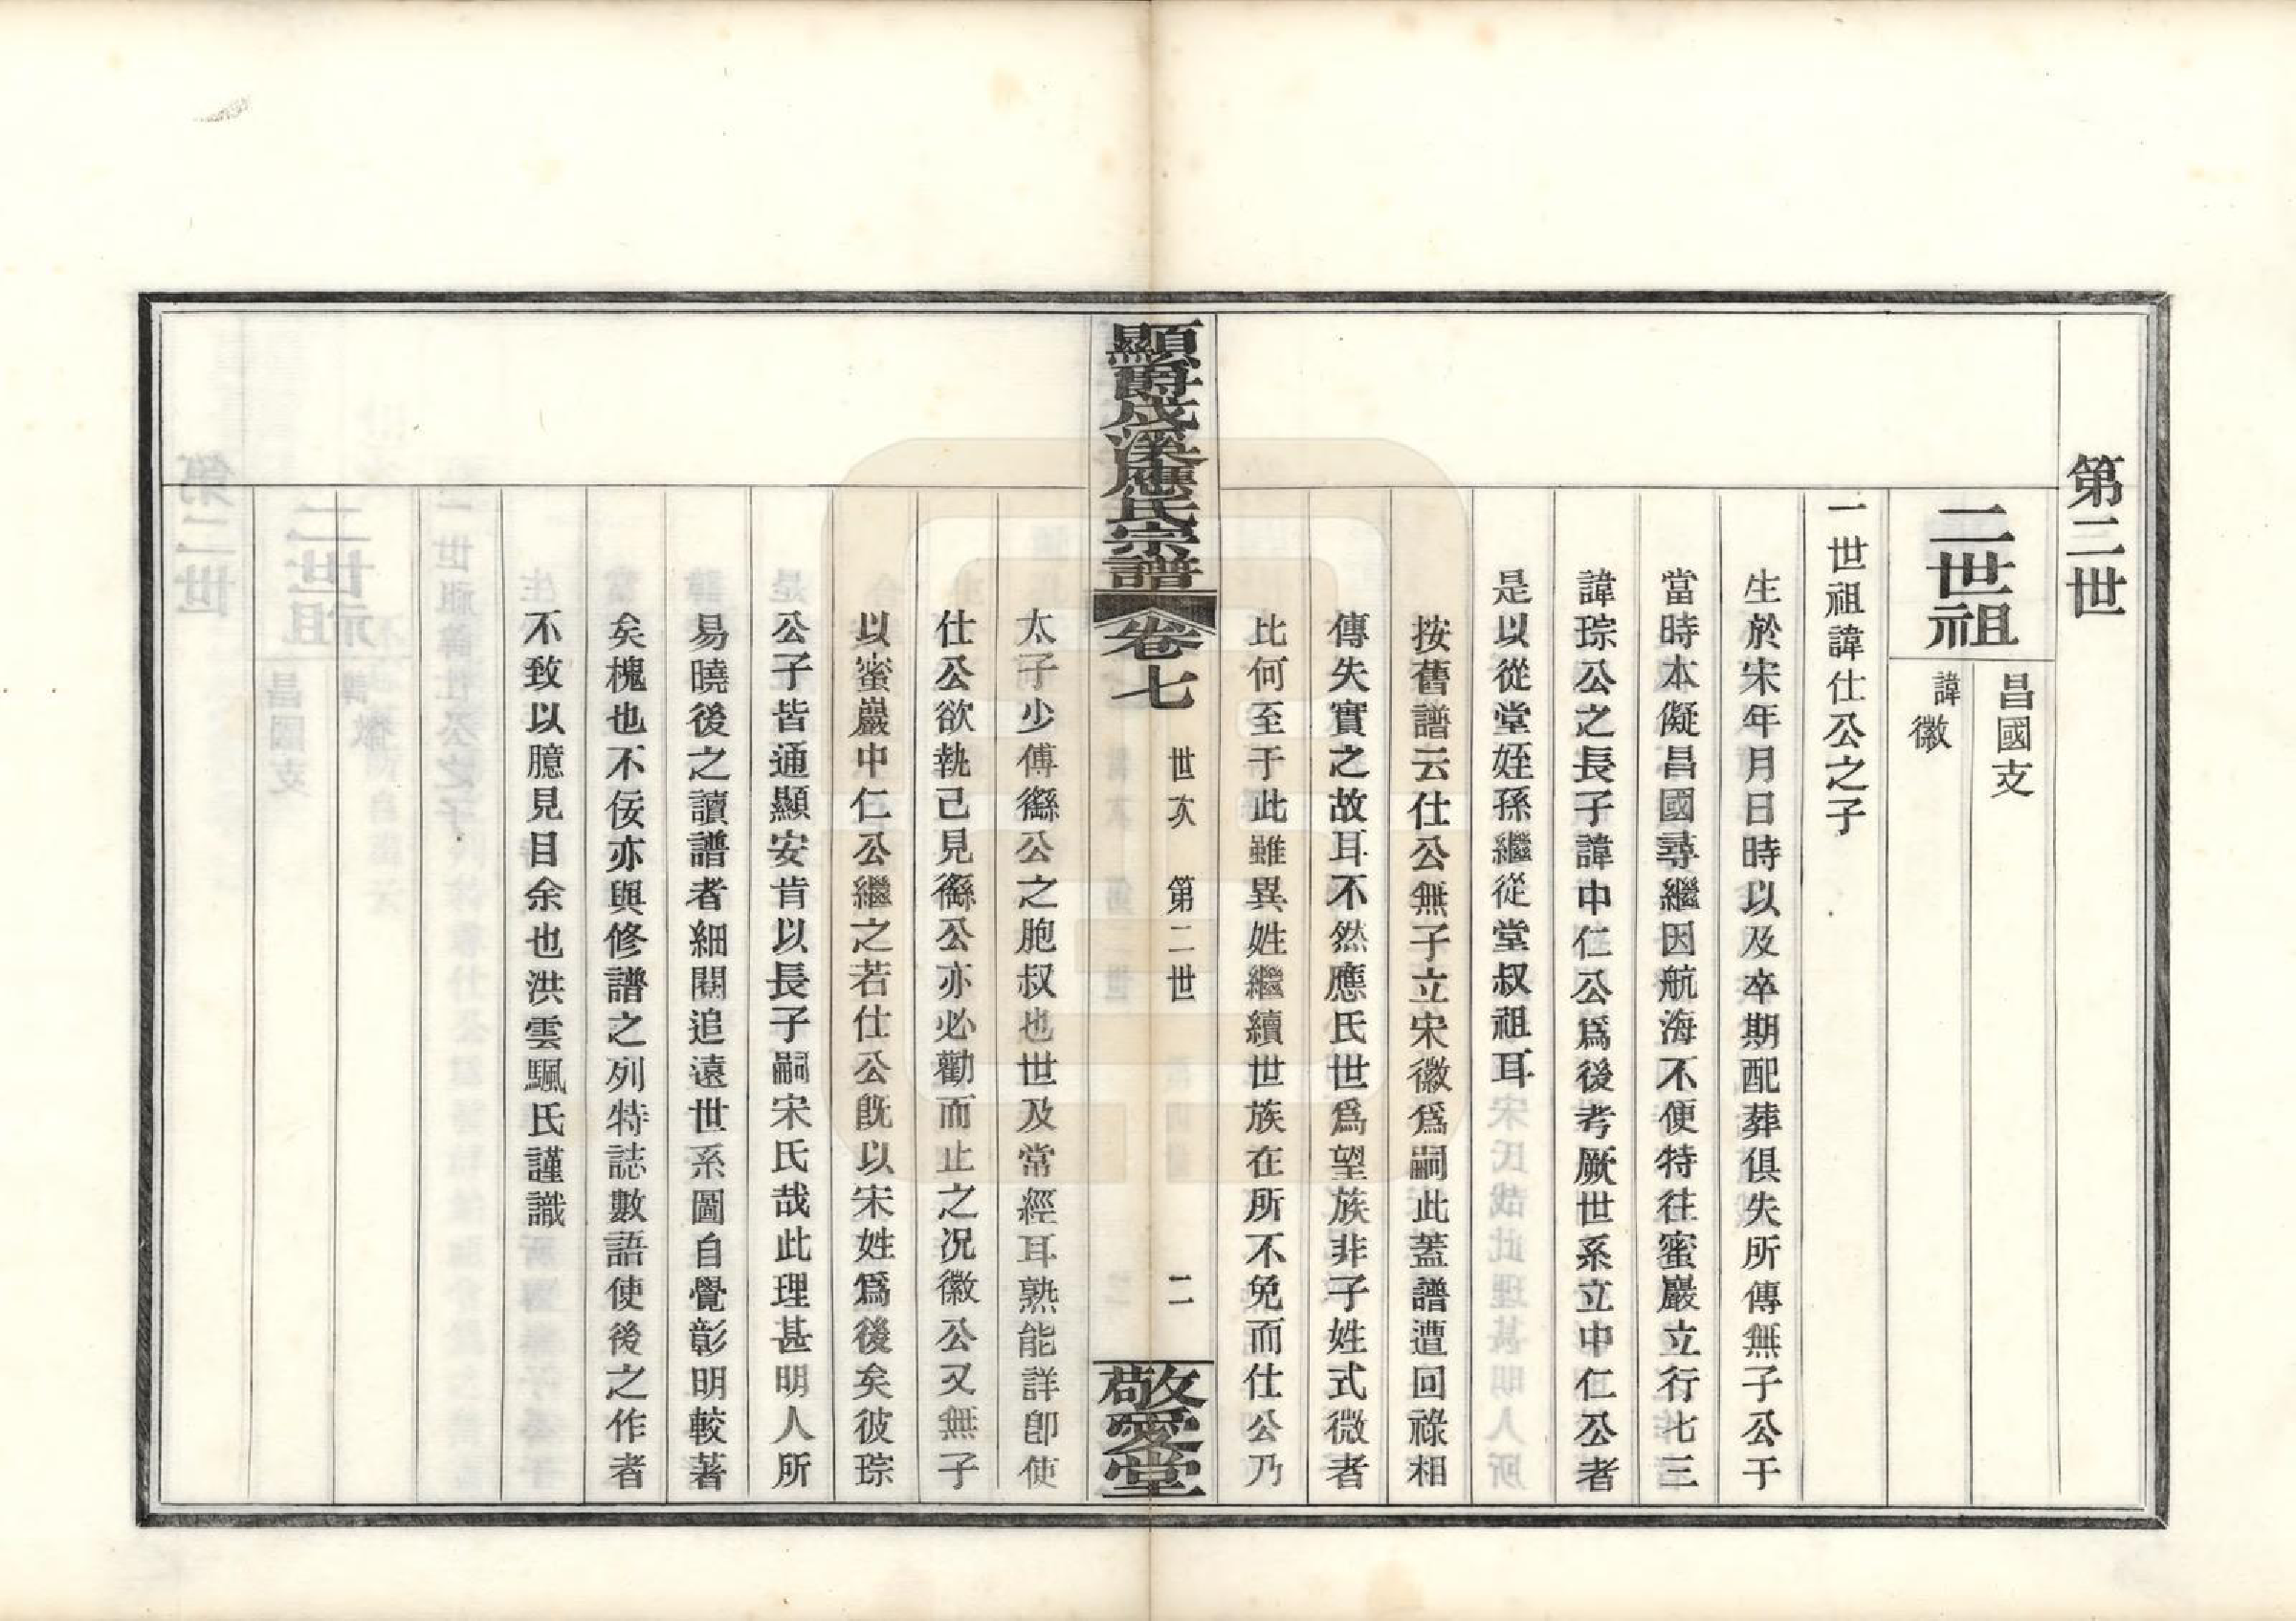 第二世
昌國支
二世祖
諱徽
一世祖諱仕公之子
生於宋年月日時以及卒期配葬俱失所傳無子公于
當時本儗昌國尋繼因航海不便特往蜜巖立行七三
諱琮公之長子諱中仁公爲後考厥世系立中仁公者
是以從堂姪孫繼從堂叔祖耳
按舊譜云仕公無子立宋徽爲嗣此蓋譜遭回祿相
傳失實之故耳不然應氏世爲望族非子姓式微者
比何至于此雖異姓繼續世族在所不免而仕公乃
顯爵成溪應氏宗譜
卷七
世次 第二世
二
敬愛堂
太子少傅㣭公之胞叔也世及常經耳熟能詳卽使
仕公欲執己見㣭公亦必勸而止之况徽公又無子
以蜜巖中仁公繼之若仕公旣以宋姓爲後矣彼琮
公子皆通顯安肯以長子嗣宋氏哉此理甚明人所
易曉後之讀譜者細閱追遠世系圖自覺彰明較著
矣槐也不佞亦與修譜之列特誌數語使後之作者
不致以臆見目余也洪雲颿氏謹識